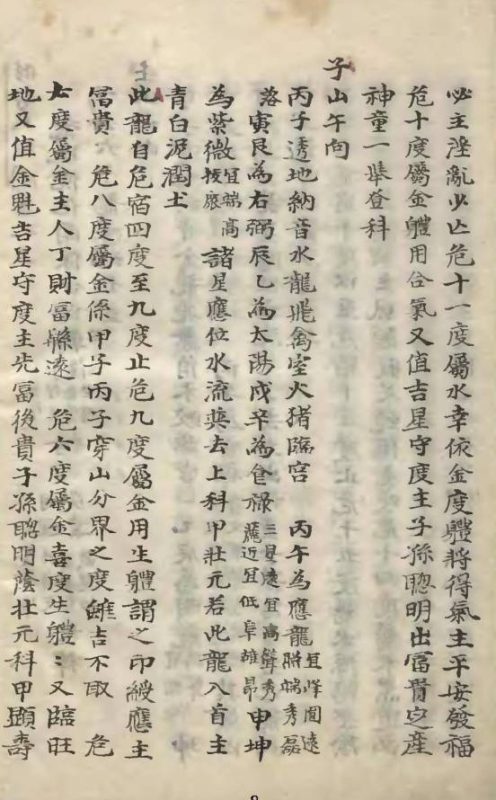 必主淫亂少亾危十一度屬水幸依金度體將得氣主平安發福
危十度屬金體用合氣又值吉星守度主子孫聰明出富貴之産
神童一舉登科
子山午向
丙子透地納音水龍飛禽室火猪臨宮 丙午為應龍宜峰圓遠照端秀磊
落寅艮為右弼辰乙為太陽戌辛為食祿三星遠宜高聳秀麗近宜低阜雄昂申坤
為紫微宜端高授應諸星應位水流巽去上科甲壯元若此龍入首主
青白泥潤土
此龍自危宿四度至九度止危九度屬金用生體謂之印綬應主
富貴 危八度屬金係甲子丙子穿山分界之度雖吉不取 危
七度屬金主人丁財富綿遠 危六度屬金喜度生體:又臨旺
地又值金魁吉星守度主先富後貴子孫聰明蔭壯元科甲顕壽